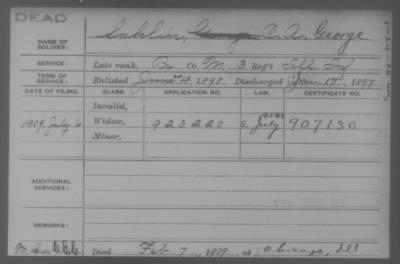 DEAD
NAME OF SOLDIER: Sahlin, George C. A. George
SERVICE: Late rank, Co. M, 3 Reg't Ill Inf
TERM OF SERVICE: Enlisted June 1898. Discharged Jan 17, 1899
DATE OF FILING. CLASS. APPLICATION NO. LAW. CERTIFICATE NO.
Invalid,
1909 July 6 Widow, 923220 S. July 907130
Minor,
ADDITIONAL SERVICES:
REMARKS:
Died Feb. 7, 1909, at Chicago, Ill